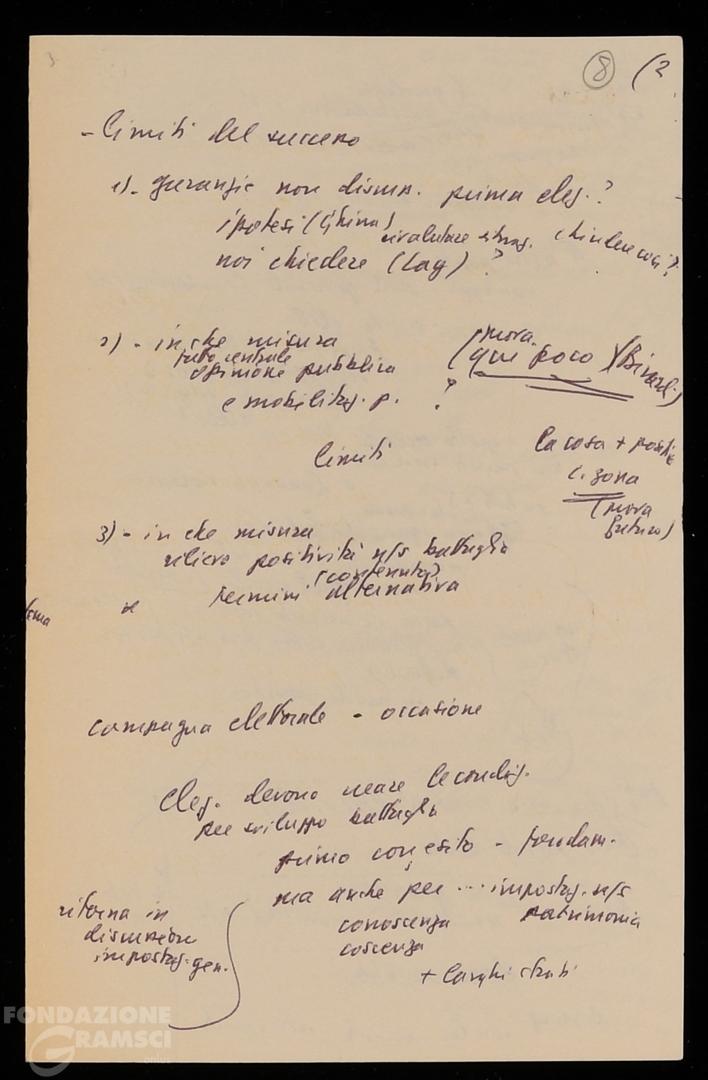 8 (2
- limiti del successo
1) - garanzie non discus. prima elez. ?
ipotesi (Ghina)
rivalutare strag. chiudere così ?
noi chiedere (Lag) ?
2) - in che misura
ruolo centrale
opinione pubblica
e mobilitaz. p. ?
(mora
qui poco)
limiti
la cosa + positi
c. zona
(mora
futuro)
3) - in che misura
rilievo positività n/s battaglia
(contenuto)
termini alternativa
campagna elettorale - occasione
elez. devono creare le condiz.
per sviluppo battaglia
primo con esito - fondam.
ma anche per ... impostaz. n/s
conoscenza patrimonio
coscienza
+ larghi strati
ritorna in
discussione
impostaz. gen.
FONDAZIONE
GRAMSCI
onlus